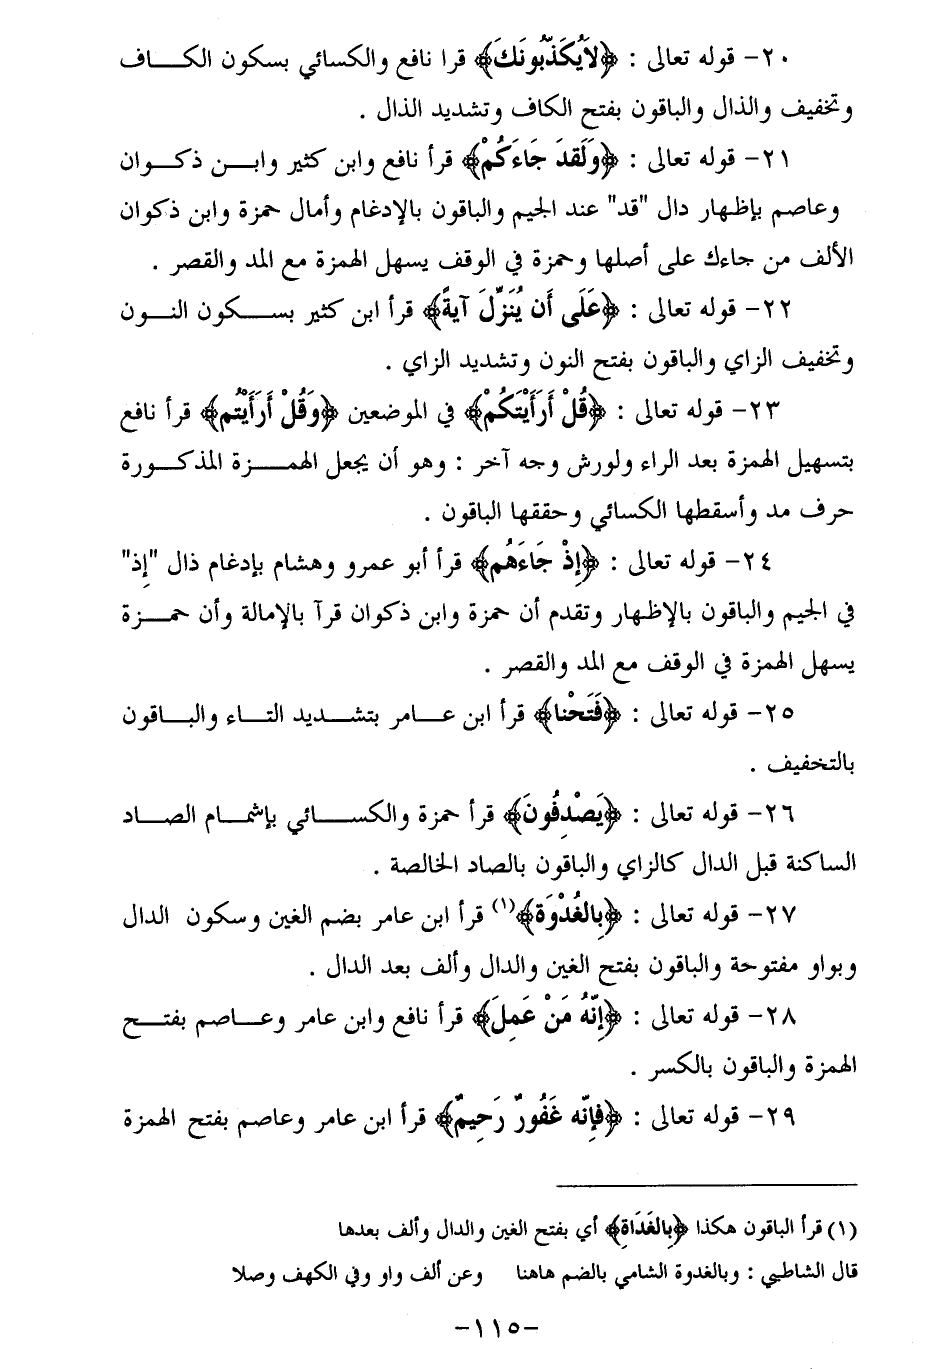 ٢٠- قوله تعالى : ﴿لاَيُكَذّبُونَكَ﴾ قرا نافع والكسائي بسكون الكاف
وتخفيف والذال والباقون بفتح الكاف وتشديد الذال .
٢١- قوله تعالى : ﴿وَلَقدَ جَاءَكُمْ﴾ قرأ نافع وابن كثير وابن ذكوان
وعاصم بإظهار دال "قد" عند الجيم والباقون بالإدغام وأمال حمزة وابن ذكوان
الألف من جاءك على أصلها وحمزة في الوقف يسهل الهمزة مع المد والقصر .
٢٢- قوله تعالى : ﴿عَلَى أَن يُنَزِّلَ آيةً﴾ قرأ ابن كثير بسكون النون
وتخفيف الزاي والباقون بفتح النون وتشديد الزاي .
٢٣- قوله تعالى : ﴿قُلْ أَرَأَيْتَكُمْ﴾ في الموضعين ﴿وَقُلْ أَرَأَيْتُم﴾ قرأ نافع
بتسهيل الهمزة بعد الراء ولورش وجه آخر : وهو أن يجعل الهمزة المذكورة
حرف مد وأسقطها الكسائي وحققها الباقون .
٢٤- قوله تعالى : ﴿إِذْ جَاءَهُم﴾ قرأ أبو عمرو وهشام بإدغام ذال "إِذ"
في الجيم والباقون بالإظهار وتقدم أن حمزة وابن ذكوان قرآ بالإمالة وأن حمزة
يسهل الهمزة في الوقف مع المد والقصر .
٢٥- قوله تعالى : ﴿فَتَحْنا﴾ قرأ ابن عامر بتشديد التاء والباقون
بالتخفيف .
٢٦- قوله تعالى : ﴿يَصْدِفُونَ﴾ قرأ حمزة والكسائي بإشمام الصاد
الساكنة قبل الدال كالزاي والباقون بالصاد الخالصة .
٢٧- قوله تعالى : ﴿بِالغُدْوَة﴾(١) قرأ ابن عامر بضم الغين وسكون الدال
وبواو مفتوحة والباقون بفتح الغين والدال وألف بعد الدال .
٢٨- قوله تعالى : ﴿إِنّهُ مَنْ عَمِلَ﴾ قرأ نافع وابن عامر وعاصم بفتح
الهمزة والباقون بالكسر .
٢٩- قوله تعالى : ﴿فإِنّه غَفُورٌ رَحِيمٌ﴾ قرأ ابن عامر وعاصم بفتح الهمزة
(١) قرأ الباقون هكذا ﴿بِالغَدَاةِ﴾ أي بفتح الغين والدال وألف بعدها
قال الشاطبي : وبالغدوة الشامي بالضم هاهنا وعن ألف واو وفي الكهف وصلا
-١١٥-